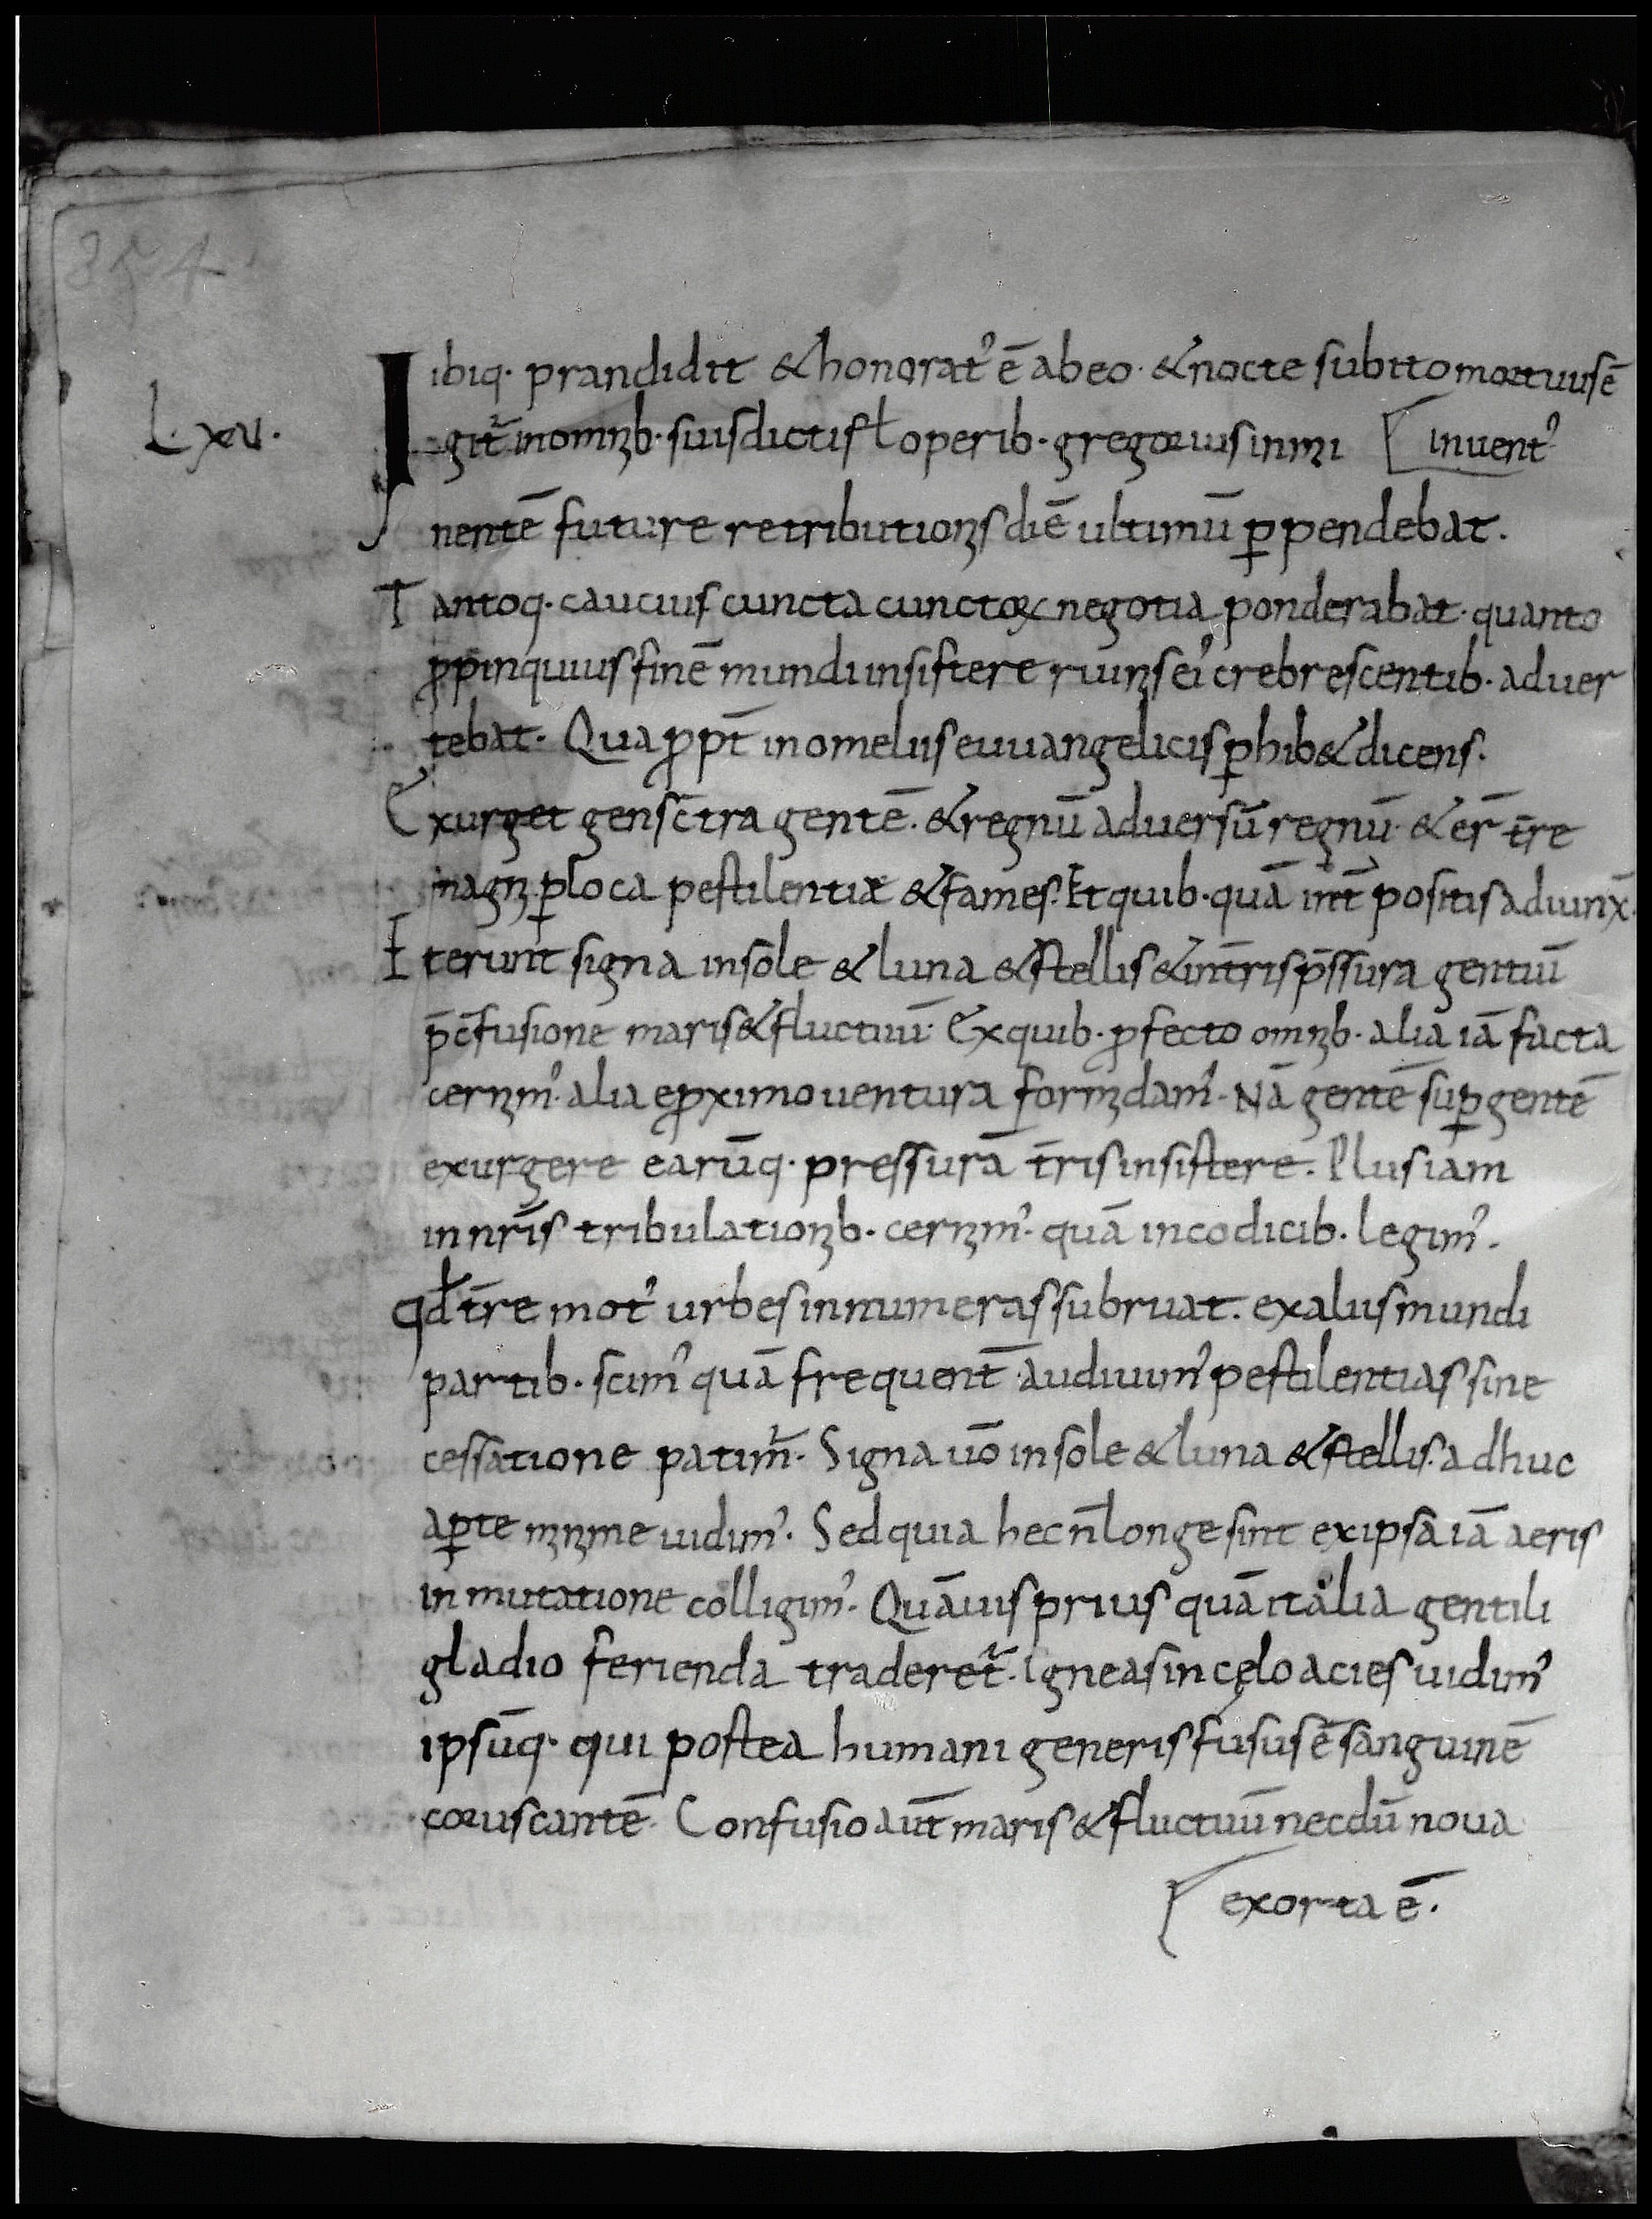 354
ibiq· prandidit & honorat᾽ ē ab eo· & nocte subito mortuus ē
Lxv.
Igit̄ in omnib· suis dictis ł operib· gregorius inmi [inuent᾽
nentē future retributionis diē ultimū ꝑpendebat.
Tantoq· caucius cuncta cunctoꝝ negotia ponderabat· quanto
ꝓpinquius finē mundi insistere ruinis ei᾽ crebrescentib· aduer
tebat· Quaꝓpt̄ in omeliis euuangelicis ꝑhib& dicens·
Exurget gens c̄tra gentē· & regnū aduersū regnū· & er̄ t̄re
magni ꝑ loca pestilentiæ & fames· Et quib· quā int̄ positis adiunx̄·
It erunt signa in sole & luna & stellis & in t̄ris p̄ssura gentiū
p̄ c̄fusione maris & fluctuū· Ex quib· ꝓfecto omnib· alia iā facta
cernim᾽· alia e ꝓximo uentura formidam᾽· Nā gentē suꝑ gentē
exurgere earūq· pressurā t̄ris insistere. Plus iam
in nr̄is tribulationib· cernim᾽· quā in codicib· legim᾽·
qđ t̄re mot᾽ urbes innumeras subruat· ex aliis mundi
partib· scim᾽ quā frequent̄ audiuim᾽ pestilentias sine
cessatione patim̄· Signa uō in sole & luna & stellis· adhuc
aꝑte minime uidim᾽· Sed quia hec n̄ longe sint ex ipsa iā aeris
inmutatione colligim᾽· Quāuis prius quā italia gentili
gladio ferienda traderet̄· igneas in cęlo acies uidim᾽
ipsūq· qui postea humani generis fusus ē sanguinē
coruscantē· Confusio aut̄ maris & fluctuū necdū noua
[exorta ē·